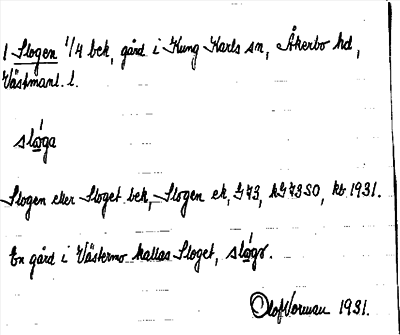 1 Slogen 1/4 bek, gård i Kung Karls sn, Åkerbo hd,
Västmanl. l.
slòga
Slogen eller Sloget bek, Slogen ek, G73, kG73SO, kb 1931.
En gård i Västermo kallas Sloget,
Olof Norman 1931.